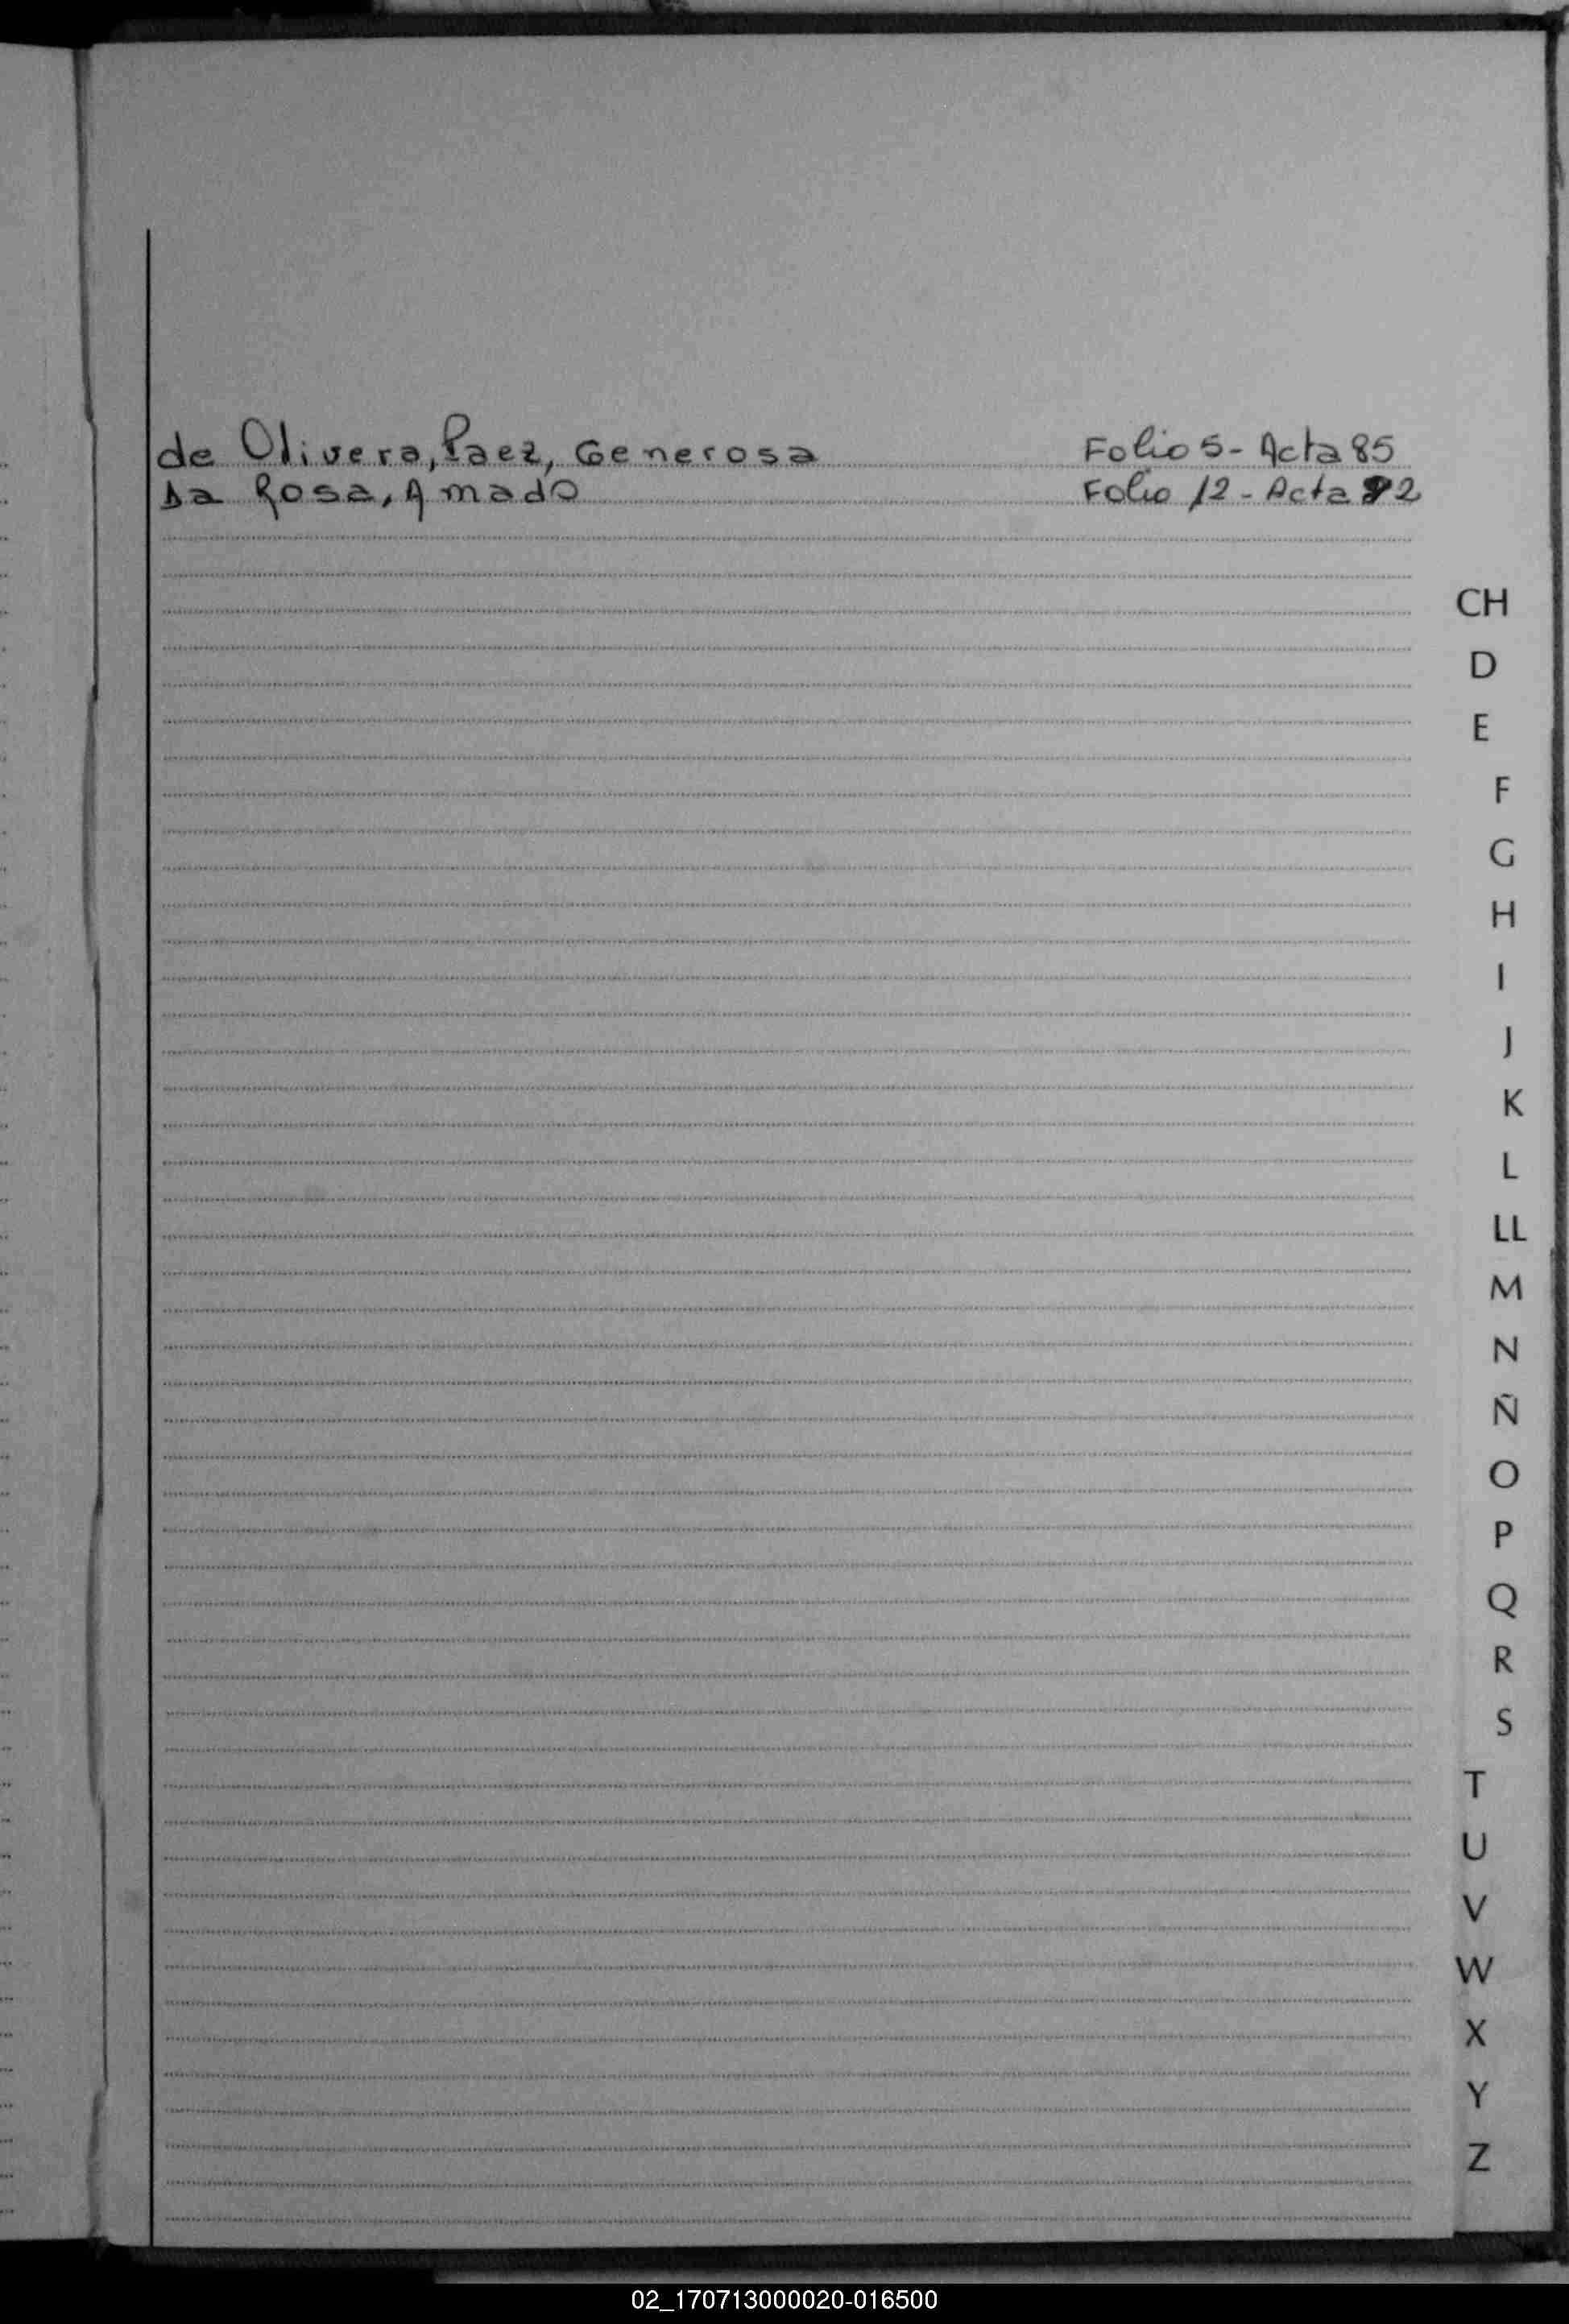 de Olivera, Paez, Generosa Folio 5 - Acta 85
Da Rosa, Amado Folio 12 - Acta 92
CH
D
E
F
G
H
I
J
K
L
LL
M
N
Ñ
O
P
Q
R
S
T
U
V
W
X
Y
Z
02_170713000020-016500